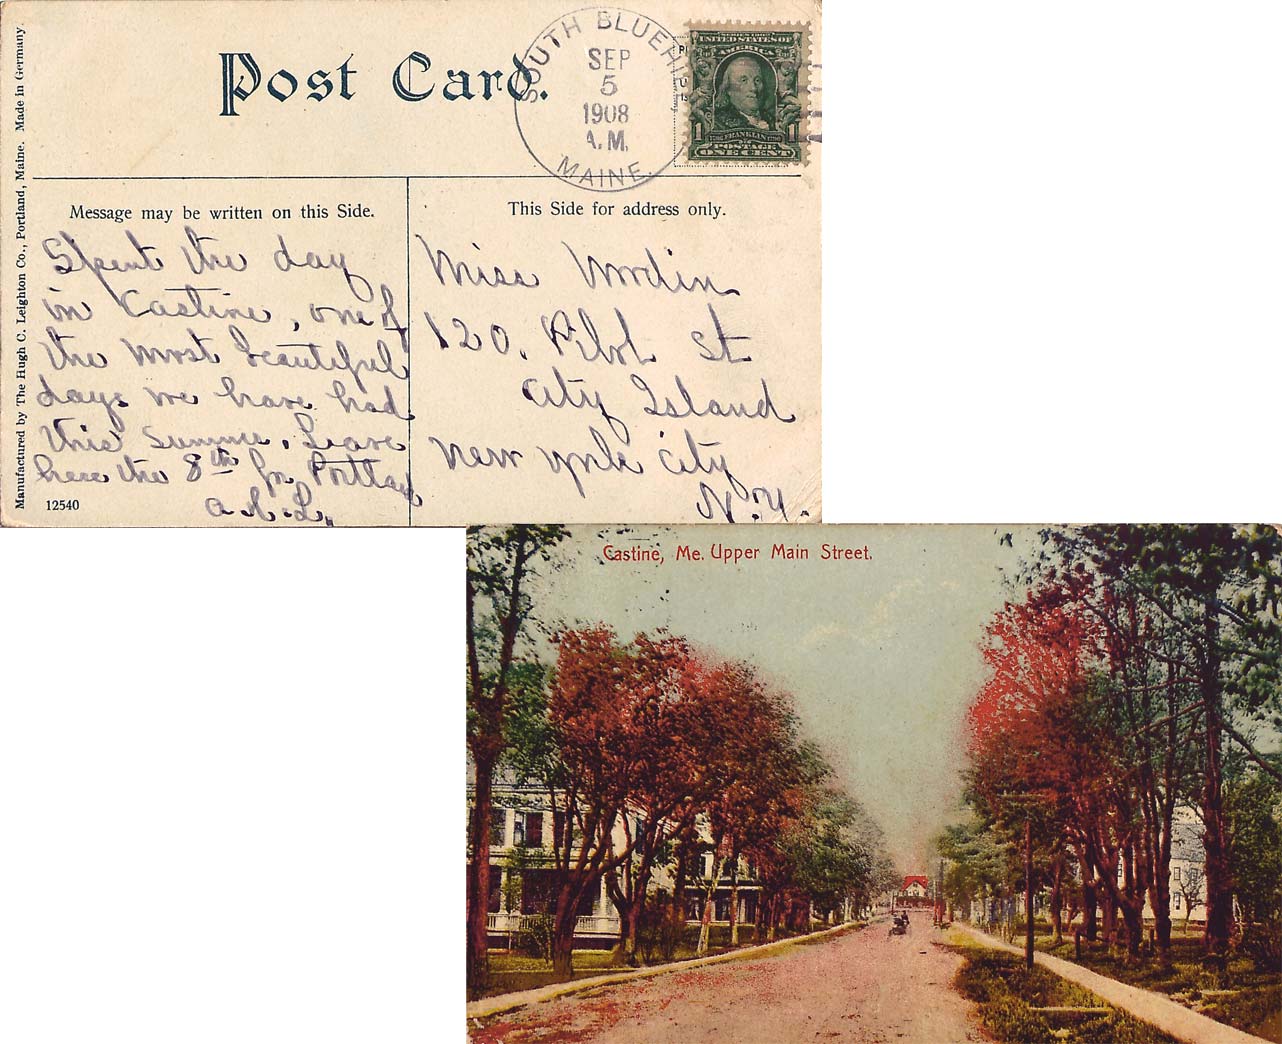 Post Card.
SOUTH BLUEHILL
SEP
5
1908
A.M.
MAINE.
SERIES 1902
UNITED STATES OF
AMERICA
1706 FRANKLIN 1790
1 POSTAGE 1
ONE CENT
Manufactured by The Hugh C. Leighton Co., Portland, Maine. Made in Germany.
Message may be written on this Side.
Spent the day
in Castine, one of
the most beautiful
days we have had
this summer. Leave
here the 8th for Portland
12540
This Side for address only.
Miss Wordin
120. Pilot St
City Island
New York City
N.Y.
Castine, Me. Upper Main Street.